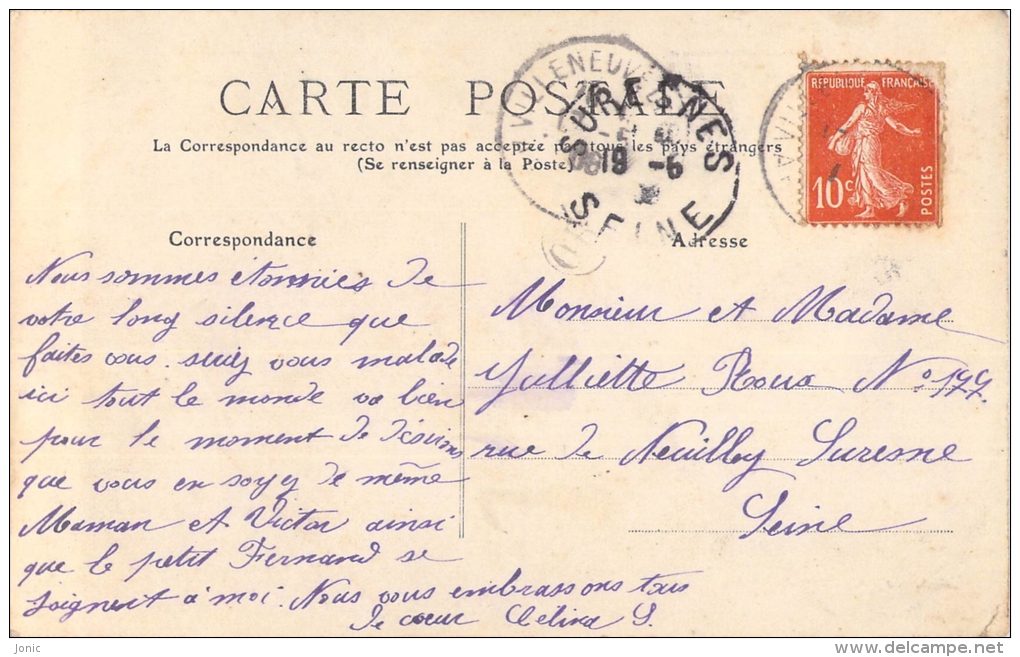 CARTE POSTALE
La Correspondance au recto n'est pas acceptée par tous les pays étrangers
(Se renseigner à la Poste)
VILLENEUVE
SURESNES
19 -6
SEINE
REPUBLIQUE FRANÇAISE
10 c
POSTES
Correspondance
Nous sommes étonnées de
votre long silence que
faites vous seriez vous malade
ici tout le monde va bien
pour le moment je désirons
que vous en soyez de même
Maman et Victor ainsi
que le petit Fernand se
joignent à moi. Nous vous embrassons tous
de cœur Célina S.
Adresse
Monsieur et Madame
Julliette Roux No 177.
rue de Neuilley Suresne
Seine
Jonic
delcampe.net